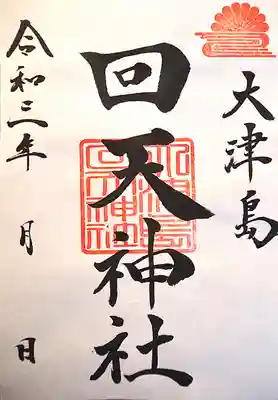 大津島
回天神社
令和三年 月 日